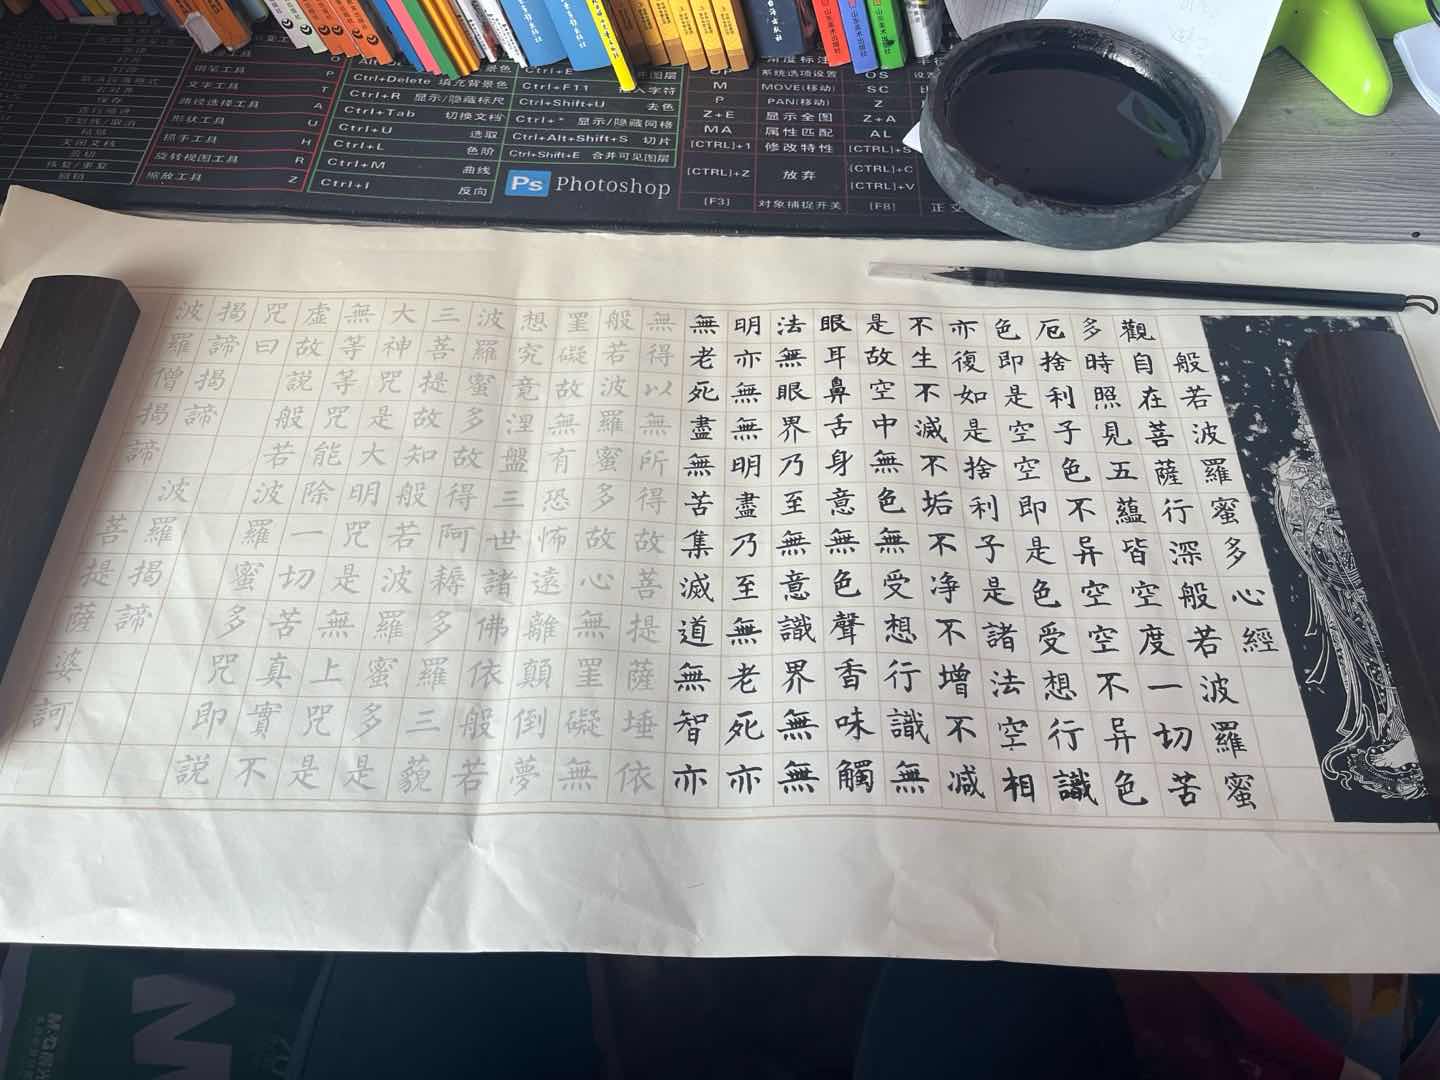 般若波羅蜜多心經
觀自在菩薩行深般若波羅蜜
多時照見五蘊皆空度一切苦
厄捨利子色不异空空不异色
色即是空空即是色受想行識
亦復如是捨利子是諸法空相
不生不滅不垢不净不增不减
是故空中無色無受想行識無
眼耳鼻舌身意無色聲香味觸
法無眼界乃至無意識界無無
明亦無無明盡乃至無老死亦
無老死盡無苦集滅道無智亦
無得以無所得故菩提薩埵依
般若波羅蜜多故心無罣礙無
罣礙故無有恐怖遠離顛倒夢
想究竟涅盤三世諸佛依般若
波羅蜜多故得阿耨多羅三藐
三菩提故知般若波羅蜜多是
大神咒是大明咒是無上咒是
無等等咒能除一切苦真實不
虛故說般若波羅蜜多咒即說
咒曰
揭諦揭諦 波羅揭諦
波羅僧揭諦 菩提薩婆訶
钢笔工具 P
文字工具 T
路径选择工具 A
形状工具 U
抓手工具 H
旋转视图工具 R
缩放工具 Z
Ctrl+Delete 填充背景色
Ctrl+R 显示/隐藏标尺
Ctrl+Tab 切换文档
Ctrl+U 选取
Ctrl+L 色阶
Ctrl+M 曲线
Ctrl+I 反向
Ctrl+E
Ctrl+F11
Ctrl+Shift+U 去色
Ctrl+" 显示/隐藏网格
Ctrl+Alt+Shift+S 切片
Ctrl+Shift+E 合并可见图层
Ps Photoshop
OP 系统选项设置 OS
M MOVE(移动) SC
P PAN(移动) Z
Z+E 显示全图 Z+A
MA 属性匹配 AL
[CTRL]+1 修改特性 [CTRL]+S
[CTRL]+Z 放弃 [CTRL]+C
[CTRL]+V
[F3] 对象捕捉开关 [F8] 正交
M